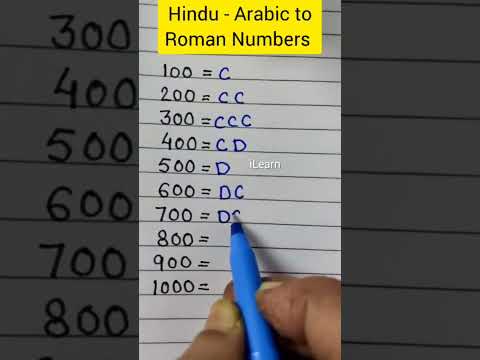 Hindu - Arabic to
Roman Numbers
100 = C
200 = CC
300 = CCC
400 = CD
500 = D
iLearn
600 = DC
700 = DC
800 =
900 =
1000 =
300
400
500
600
700
800